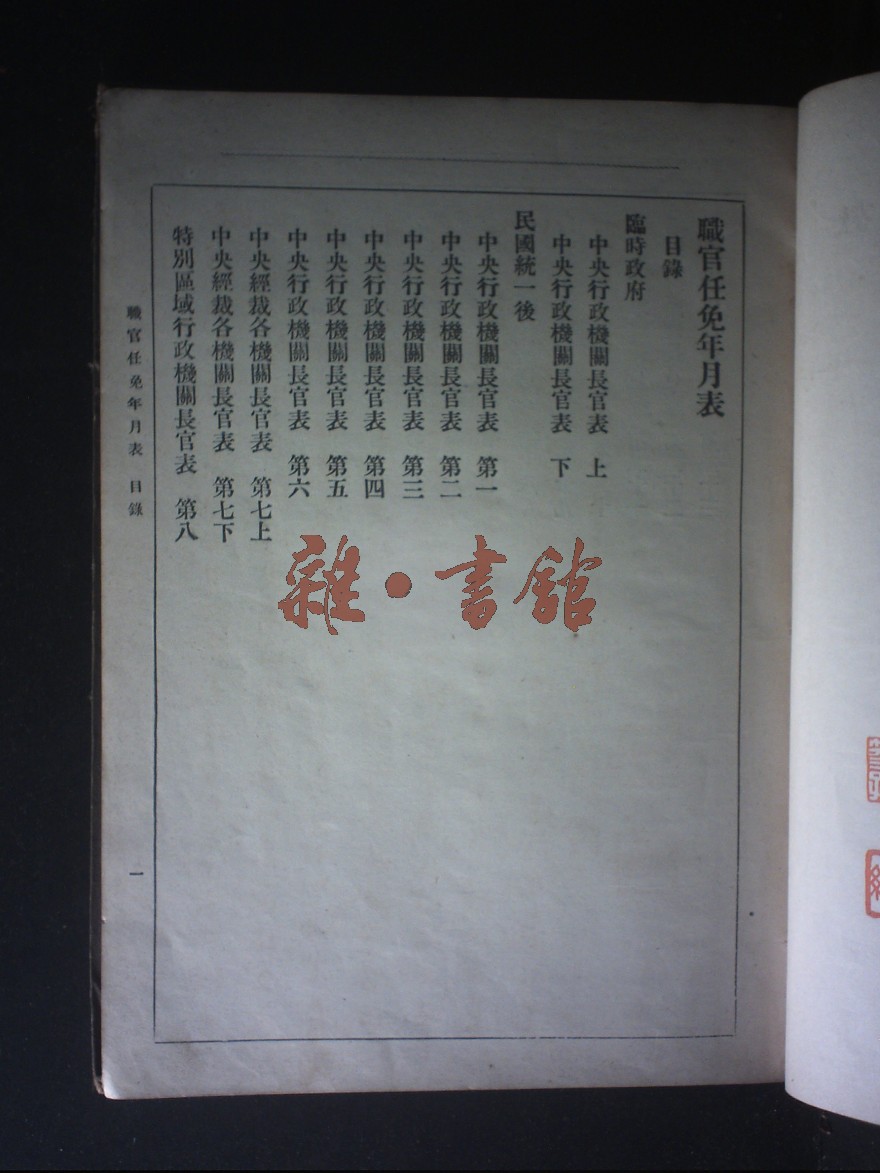 職官任免年月表
目錄
臨時政府
中央行政機關長官表 上
中央行政機關長官表 下
民國統一後
中央行政機關長官表 第一
中央行政機關長官表 第二
中央行政機關長官表 第三
中央行政機關長官表 第四
中央行政機關長官表 第五
中央行政機關長官表 第六
中央經裁各機關長官表 第七上
中央經裁各機關長官表 第七下
特別區域行政機關長官表 第八
職官任免年月表 目錄
一
雜·書館